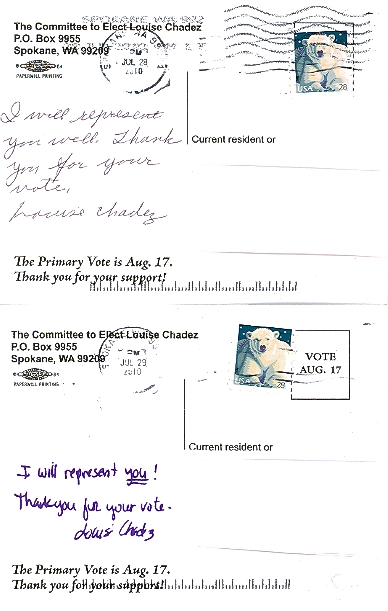 SPOKANE WA 992
The Committee to Elect Louise Chadez
P.O. Box 9955
Spokane, WA 99209
PAPERMILL PRINTING
JUL 28
2010
USA 28
I will represent
you well. Thank
you for your
vote,
Louise Chadez
Current resident or
The Primary Vote is Aug. 17.
Thank you for your support!
The Committee to Elect Louise Chadez
P.O. Box 9955
Spokane, WA 99209
PAPERMILL PRINTING
PM
JUL 29
2010
USA 28
VOTE
AUG. 17
Current resident or
I will represent you!
Thank you for your vote.
Louise Chadez
The Primary Vote is Aug. 17.
Thank you for your support!